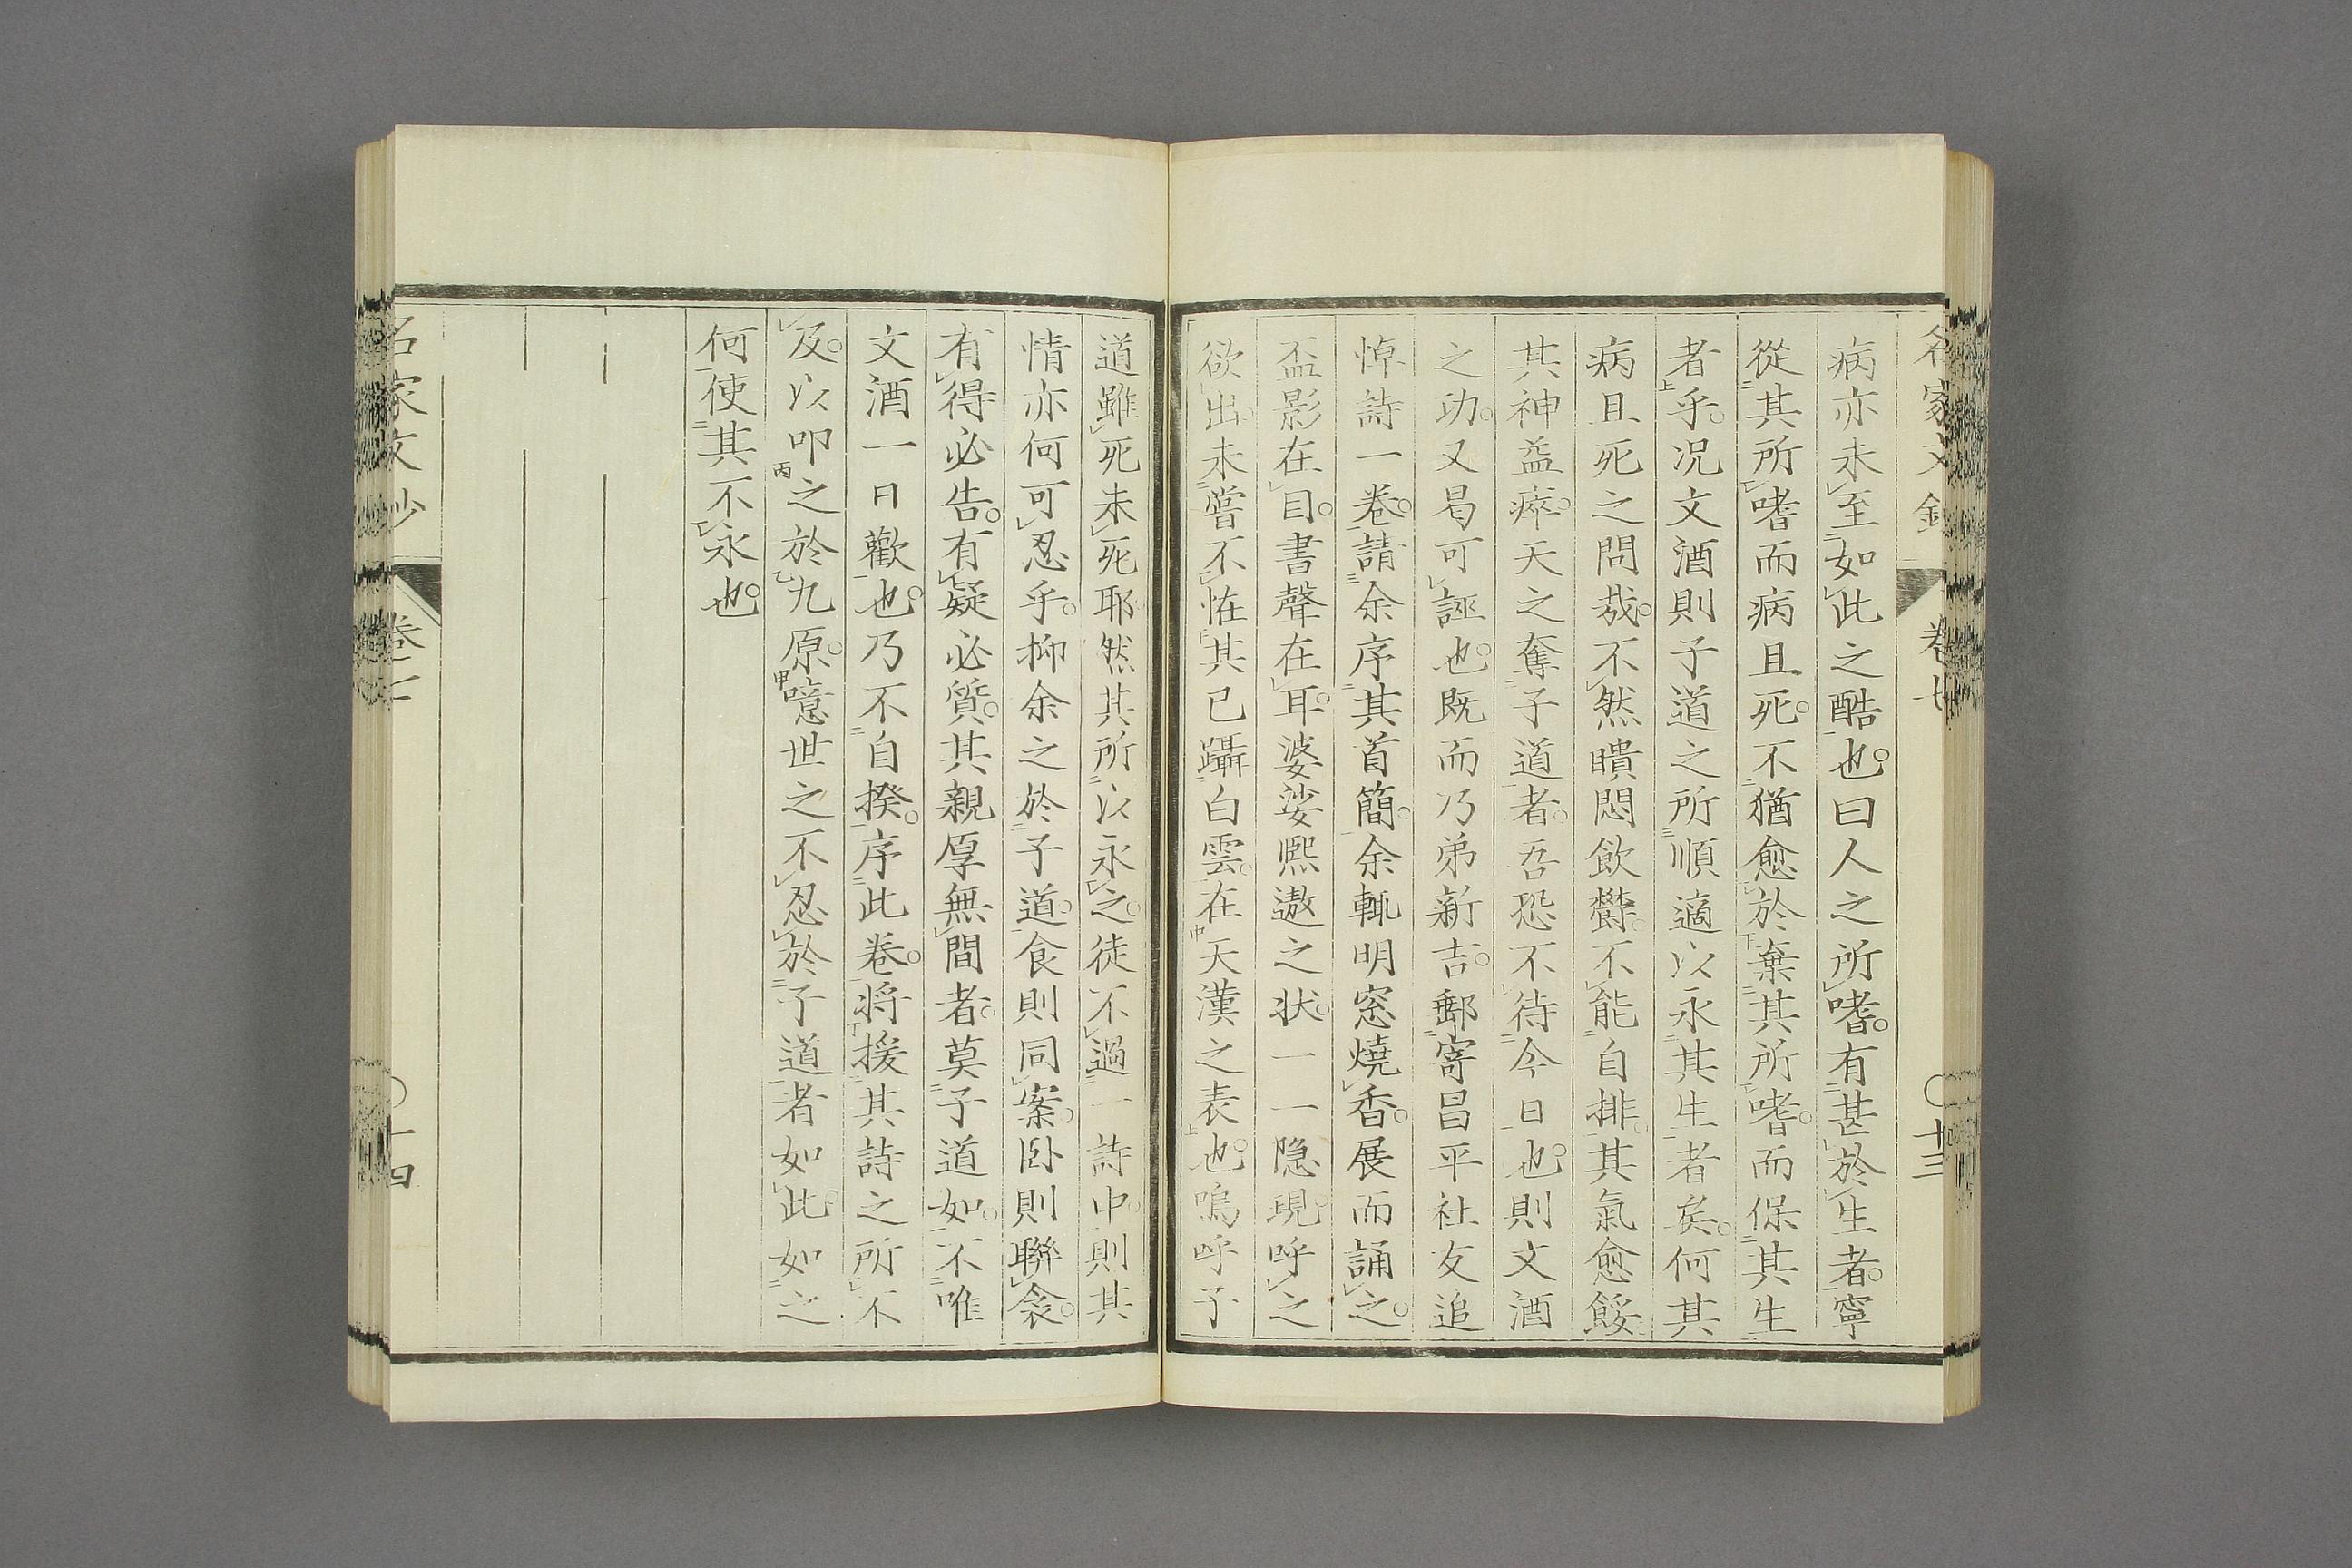 病亦未至如此之酷也曰人之所嗜有甚於生者寧
從其所嗜而病且死不猶愈於棄其所嗜而保其生
者乎况文酒則子道之所順適以永其生者矣何其
病且死之問哉不然瞶悶飲欝不能自排其氣愈餒
其神益瘁天之奪子道者吾恐不待今日也則文酒
之功又曷可誣也既而乃弟新吉郵寄昌平社友追
悼詩一卷請余序其首簡余輒明窓燒香展而誦之
盃影在目書聲在耳婆娑熈遨之状一一隐現呼之
欲出未嘗不恠其已躡白雲在天漢之表也嗚呼子
道雖死未死耶然其所以永之徒不過一詩中則其
情亦何可忍乎抑余之於子道食則同案卧則聯衾
有得必告有疑必質其親厚無間者莫子道如不唯
文酒一日歡也乃不自揆序此卷将援其詩之所不
及以叩之於九原噫世之不忍於子道者如此如之
何使其不永也
名家文鈔
卷七
十三
名家文鈔
卷七
十四